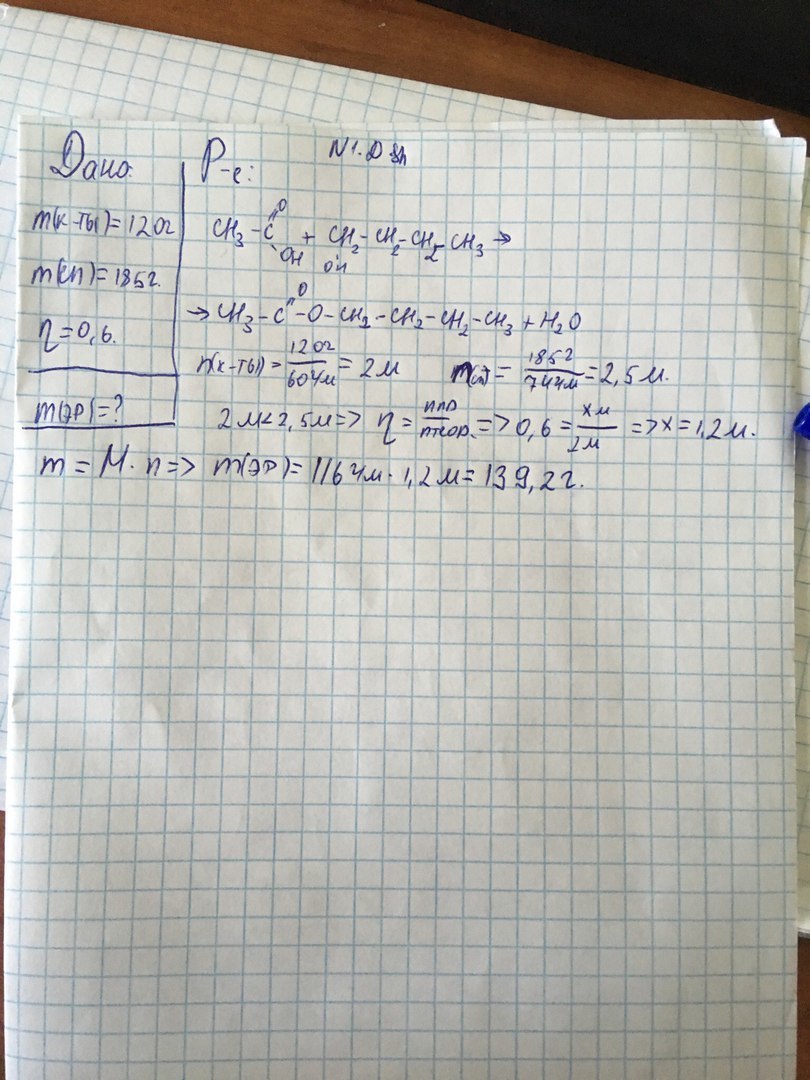 Дано:
m(к-ты)=120г
m(сп)=185г.
η=0,6.
m(эр)=?
Р-е:
CH3-C=O OH + CH2-CH2-CH2-CH3 →
OH
→ CH3-C=O-O-CH2-CH2-CH2-CH3 + H2O
n(к-ты) = 120г/60г/м = 2м n(сп) = 185г/74г/м = 2,5м.
2м<2,5м=> η = nпр/nтеор. => 0,6 = xм/2м => x=1,2м.
m = M · n => m(эр)= 116г/м · 1,2м = 139,2г.